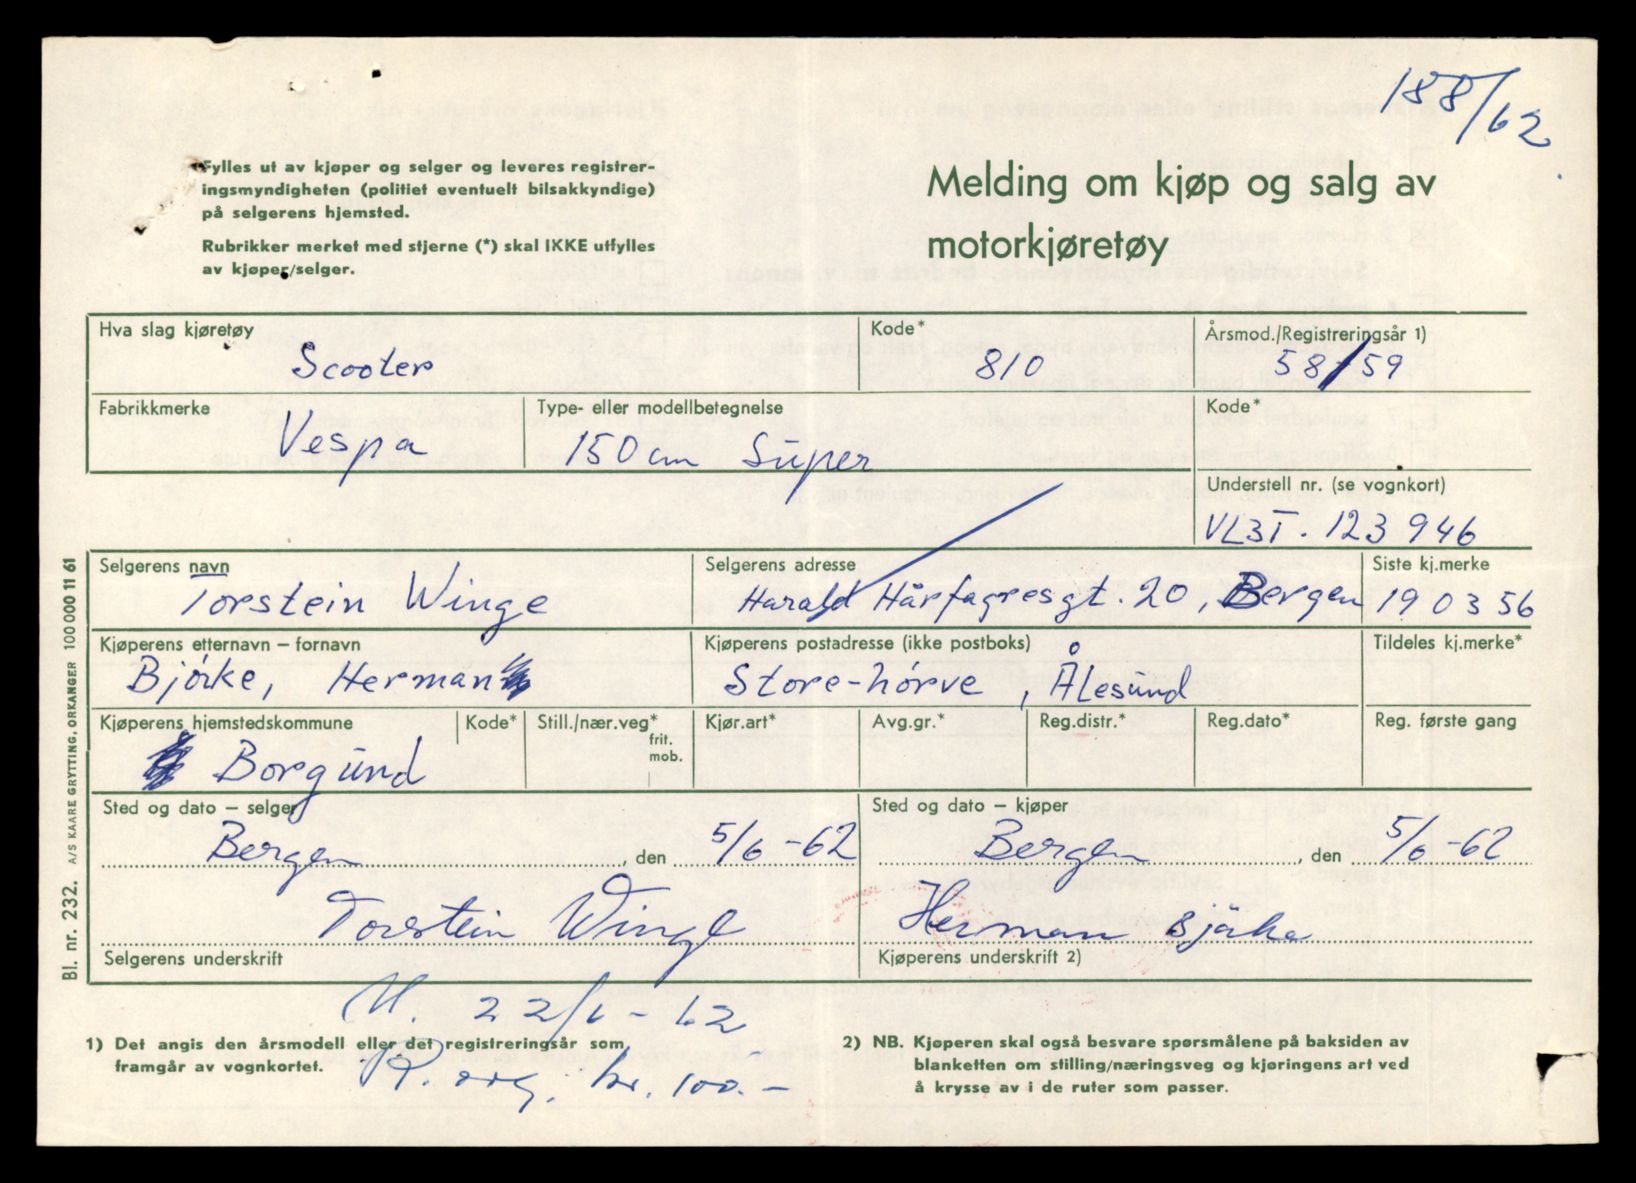 188/62
Fylles ut av kjøper og selger og leveres registrer-
ingsmyndigheten (politiet eventuelt bilsakkyndige)
på selgerens hjemsted.
Rubrikker merket med stjerne (*) skal IKKE utfylles
av kjøper/selger.
Melding om kjøp og salg av
motorkjøretøy
Hva slag kjøretøy
Scooter
Kode*
810
Årsmod./Registreringsår 1)
58/59
Fabrikkmerke
Vespa
Type- eller modellbetegnelse
150 cm Super
Kode*
Understell nr. (se vognkort)
VL3T. 123946
Selgerens navn
Torstein Winge
Selgerens adresse
Harald Hårfagresgt. 20, Bergen
Siste kj.merke
190356
Kjøperens etternavn – fornavn
Bjørke, Herman
Kjøperens postadresse (ikke postboks)
Store-hørve, Ålesund
Tildeles kj.merke*
Kjøperens hjemstedskommune
Borgund
Kode*
Still./nær.veg*
frit.
mob.
Kjør.art*
Avg.gr.*
Reg.distr.*
Reg.dato*
Reg. første gang
Sted og dato – selger
Bergen, den 5/6-62
Sted og dato – kjøper
Bergen, den 5/6-62
Torstein Winge
Selgerens underskrift
Herman Bjørke
Kjøperens underskrift 2)
M. 22/6-62
1) Det angis den årsmodell eller det registreringsår som
framgår av vognkortet.
R. avg. kr. 100.-
2) NB. Kjøperen skal også besvare spørsmålene på baksiden av
blanketten om stilling/næringsveg og kjøringens art ved
å krysse av i de ruter som passer.
Bl. nr. 232. A/S KAARE GRYTTING, ORKANGER 100 000 11 61